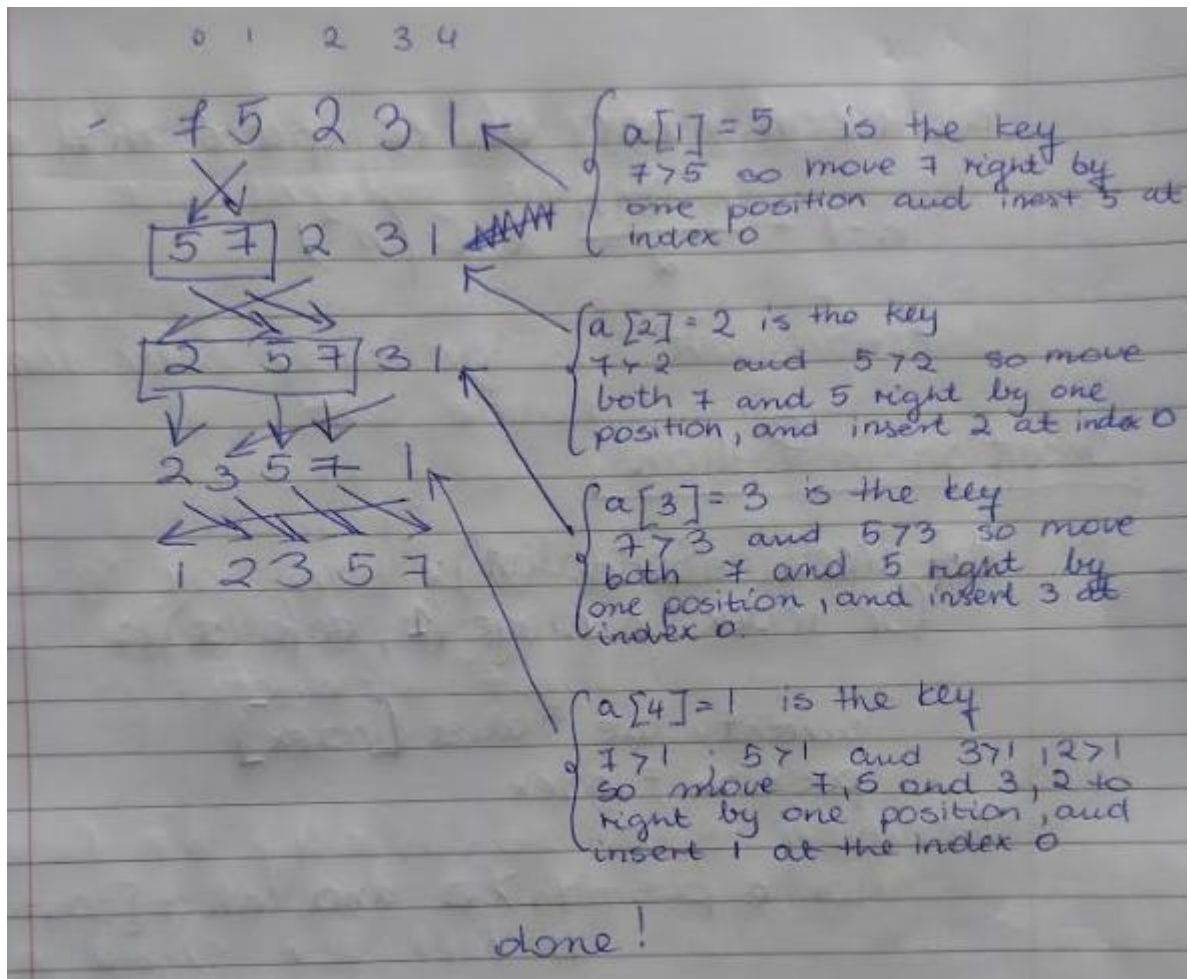 0 1 2 3 4
- 7 5 2 3 1
a[1] = 5 is the key
7>5 so move 7 right by
one position and inest 5 at
index 0
5 7 2 3 1
a[2] = 2 is the key
7>2 and 5>2 so move
both 7 and 5 right by one
position, and insert 2 at index 0
2 5 7 3 1
2 3 5 7 1
a[3] = 3 is the key
7>3 and 5>3 so move
both 7 and 5 right by
one position, and insert 3 at
index 0.
1 2 3 5 7
a[4] = 1 is the key
7>1 ; 5>1 and 3>1, 2>1
so move 7, 5 and 3, 2 to
right by one position, and
insert 1 at the index 0
done!